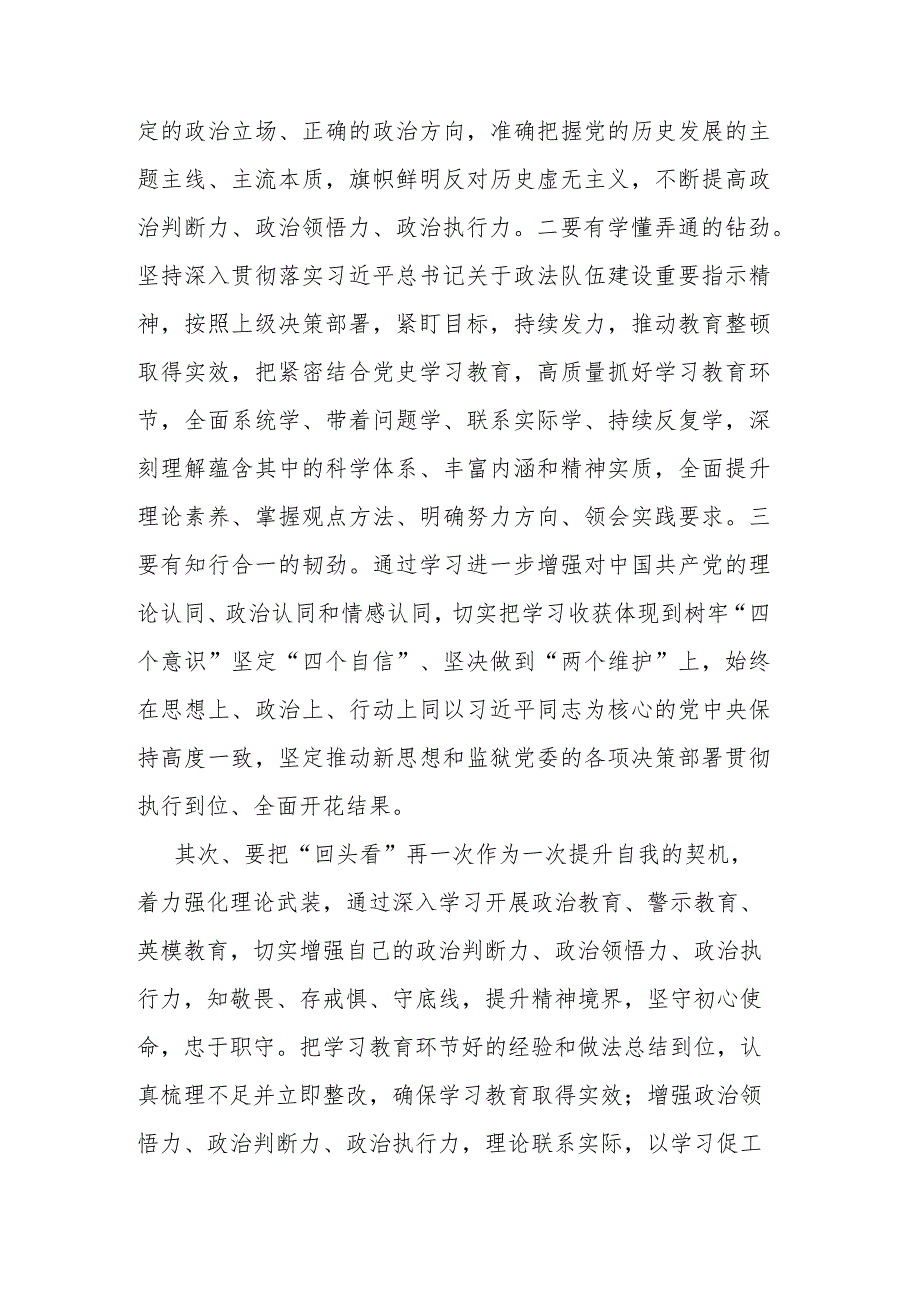 定的政治立场、正确的政治方向，准确把握党的历史发展的主
题主线、主流本质，旗帜鲜明反对历史虚无主义，不断提高政
治判断力、政治领悟力、政治执行力。二要有学懂弄通的钻劲。
坚持深入贯彻落实习近平总书记关于政法队伍建设重要指示精
神，按照上级决策部署，紧盯目标，持续发力，推动教育整顿
取得实效，把紧密结合党史学习教育，高质量抓好学习教育环
节，全面系统学、带着问题学、联系实际学、持续反复学，深
刻理解蕴含其中的科学体系、丰富内涵和精神实质，全面提升
理论素养、掌握观点方法、明确努力方向、领会实践要求。三
要有知行合一的韧劲。通过学习进一步增强对中国共产党的理
论认同、政治认同和情感认同，切实把学习收获体现到树牢“四
个意识”坚定“四个自信”、坚决做到“两个维护”上，始终
在思想上、政治上、行动上同以习近平同志为核心的党中央保
持高度一致，坚定推动新思想和监狱党委的各项决策部署贯彻
执行到位、全面开花结果。
其次、要把“回头看”再一次作为一次提升自我的契机，
着力强化理论武装，通过深入学习开展政治教育、警示教育、
英模教育，切实增强自己的政治判断力、政治领悟力、政治执
行力，知敬畏、存戒惧、守底线，提升精神境界，坚守初心使
命，忠于职守。把学习教育环节好的经验和做法总结到位，认
真梳理不足并立即整改，确保学习教育取得实效；增强政治领
悟力、政治判断力、政治执行力，理论联系实际，以学习促工